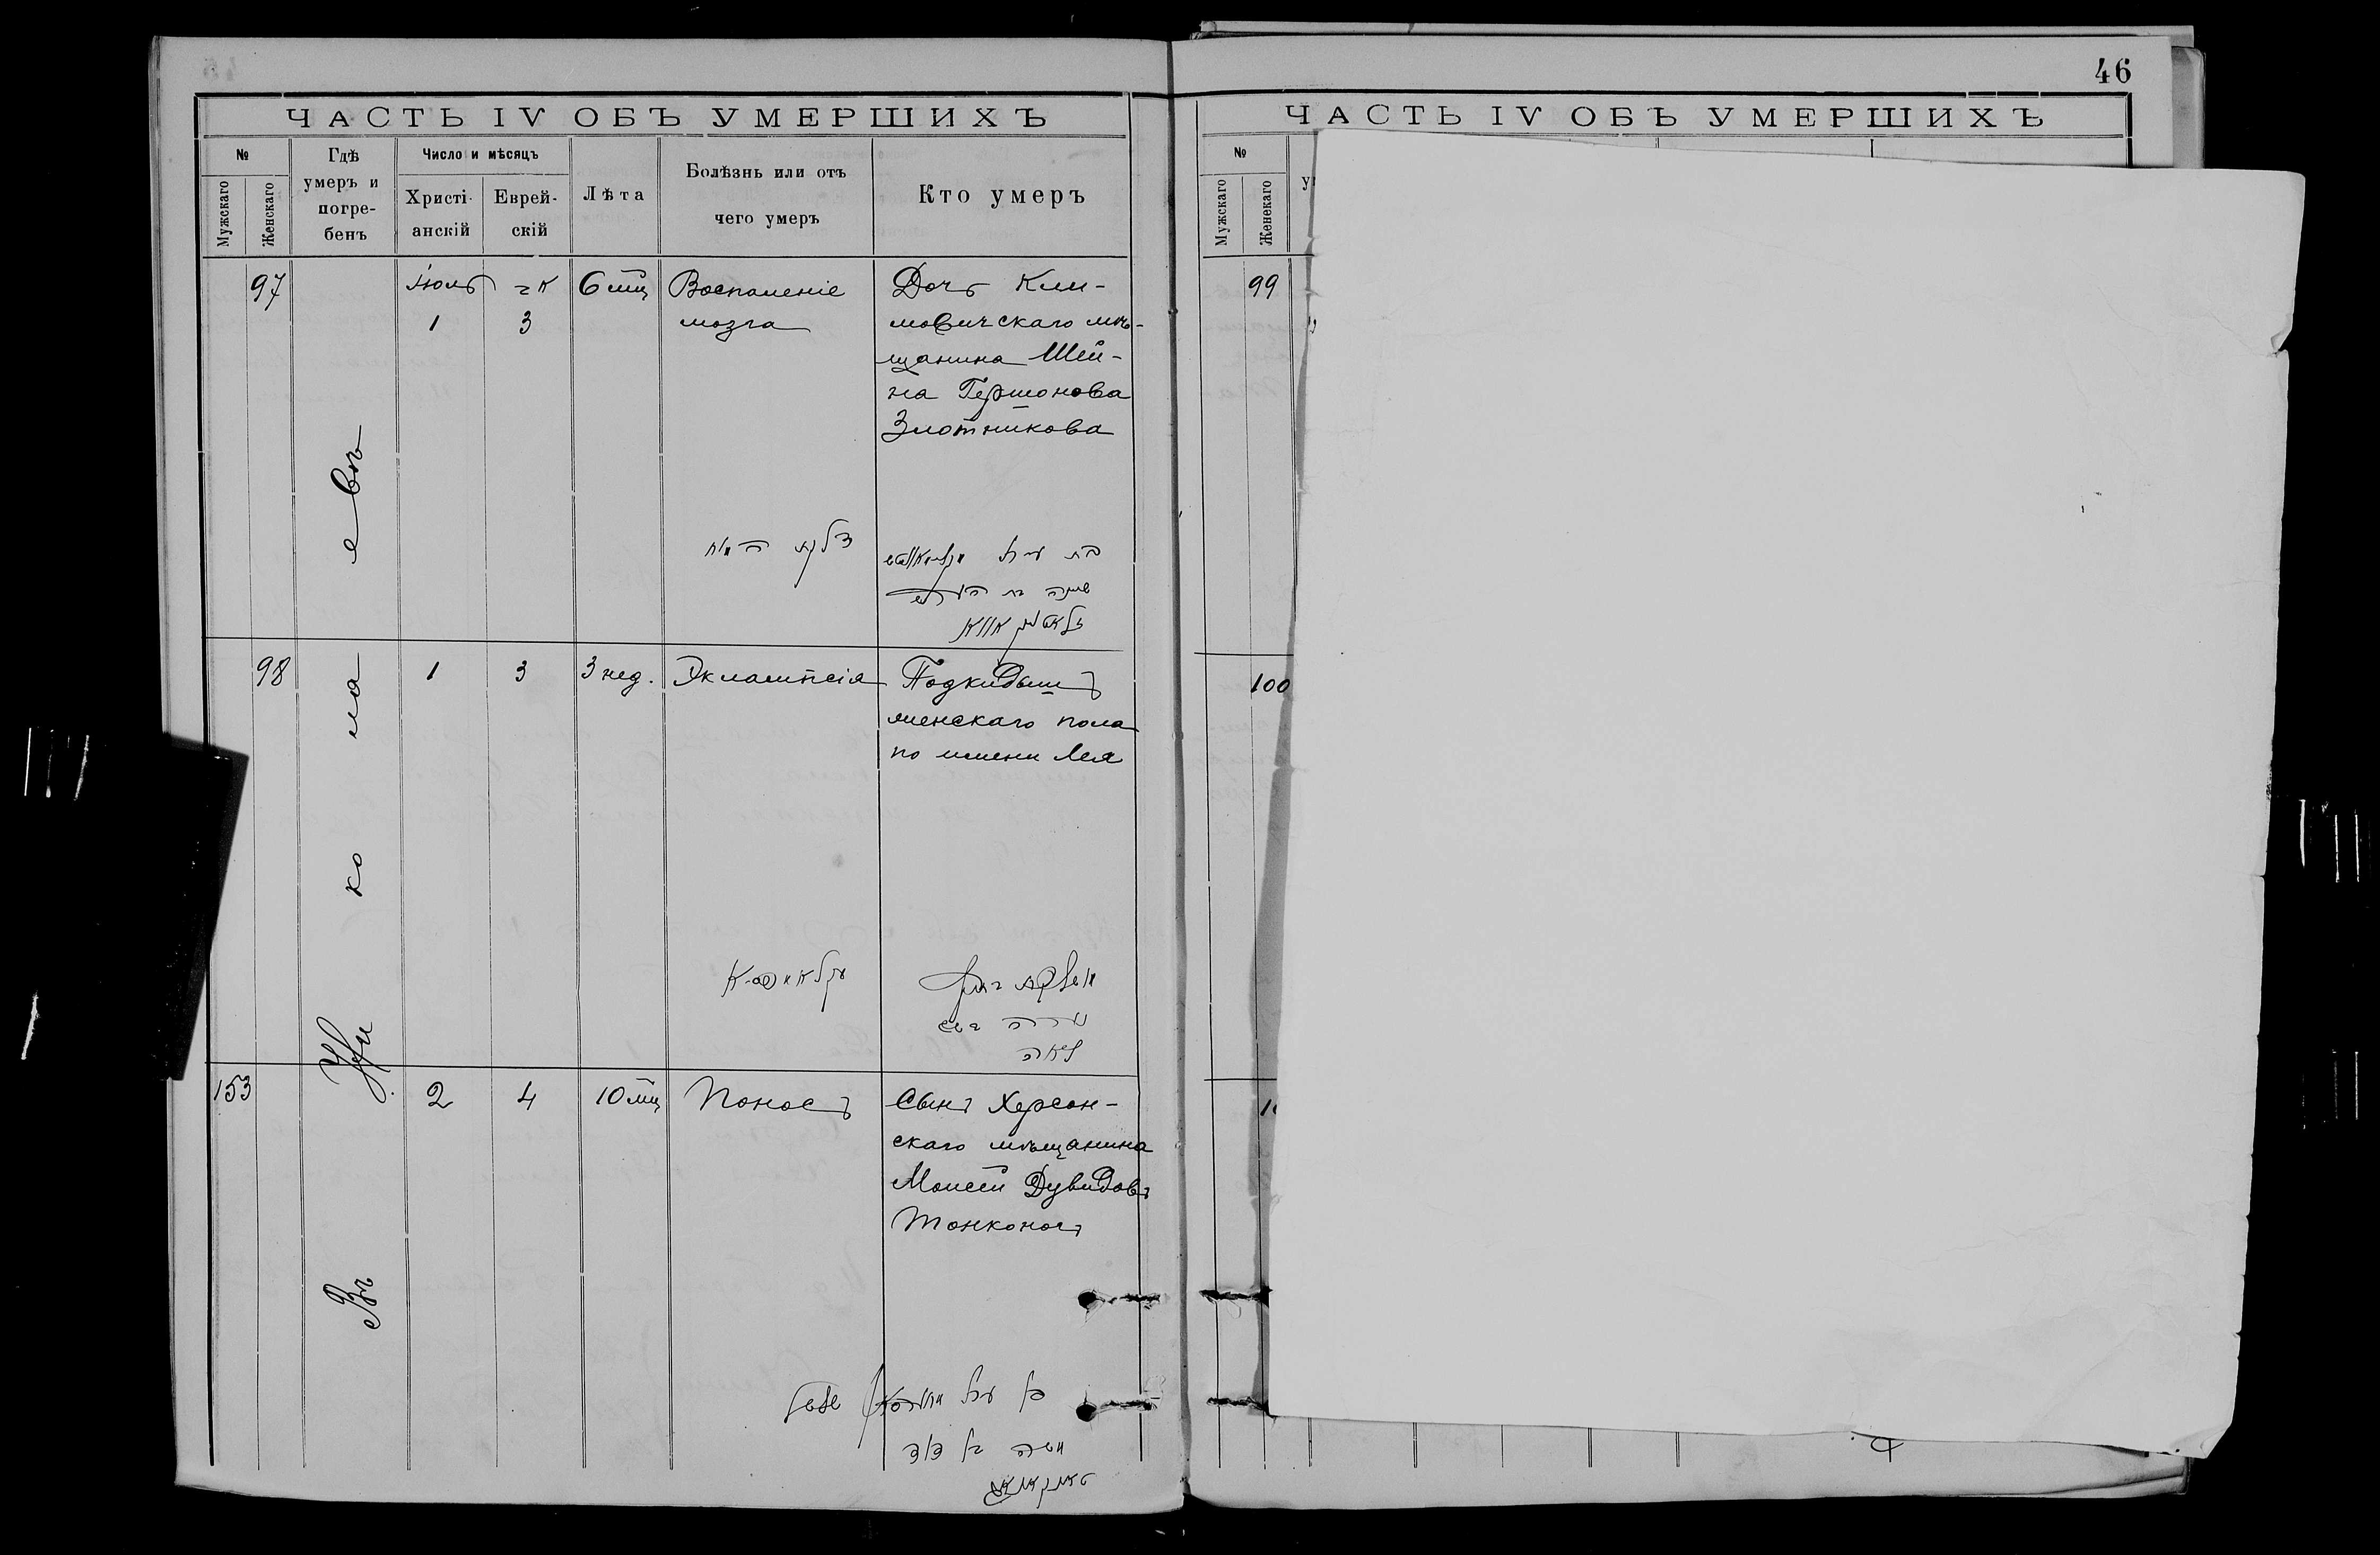 46
ЧАСТЬ IV ОБЪ УМЕРШИХЪ
№
Мужскаго
Женскаго
Гдѣ
умеръ и
погре-
бенъ
Число и мѣсяцъ
Христі-
анскій
Еврей-
скій
Лѣта
Болѣзнь или отъ
чего умеръ
Кто умеръ
Въ Николаевѣ
97
Іюль
1
3
6 мц
Воспаленіе
мозга
Дочь Кли-
мовичскаго мѣ-
щанина Шей-
на Гершонова
Злотникова
דלקת המוח
98
1
3
3 нед.
Эклампсія
Подкидышъ
женскаго пола
по имени Лея
לאה
153
2
4
10 мц
Поносъ
Сынъ Херсон-
скаго мѣщанина
Моисей Дувидовъ
Тонконогъ
שלשול
משה בן דוד
ЧАСТЬ IV ОБЪ УМЕРШИХЪ
№
Мужскаго
Женскаго
99
100